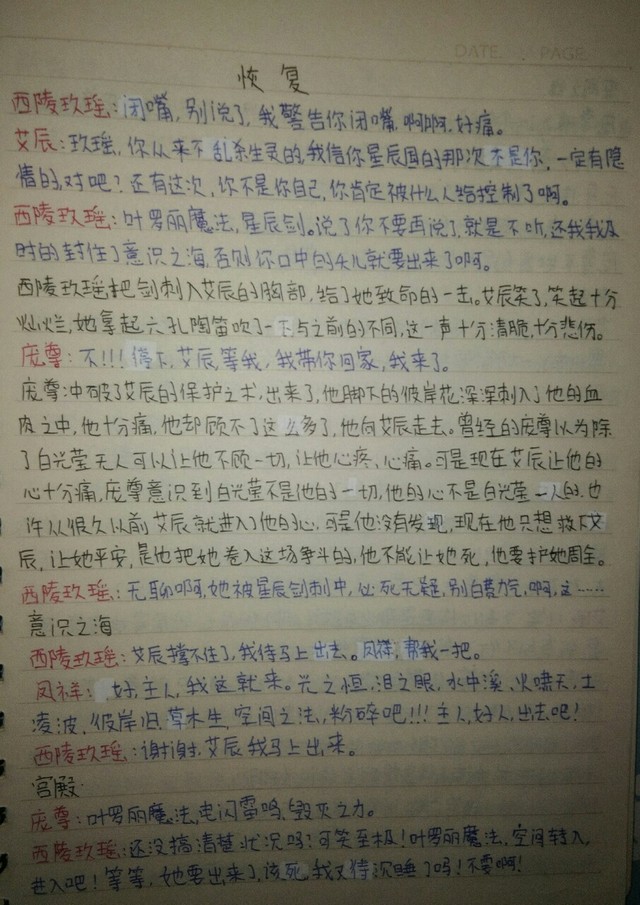 DATE PAGE
恢复
西陵玖瑶:闭嘴,别说了,我警告你闭嘴,啊啊,好痛。
艾辰:玖瑶,你从来不乱杀生灵的,我信你星辰国的那次不是你,一定有隐
情的,对吧?还有这次,你不是你自己,你肯定被什么人给控制了啊。
西陵玖瑶:叶罗丽魔法,星辰剑。说了你不要再说了,就是不听,还我我及
时的封住了意识之海,否则你口中的头儿就要出来了啊。
西陵玖瑶把剑刺入艾辰的胸部,给了她致命的一击。艾辰笑了,笑起十分
灿烂,她拿起六孔陶笛吹了一下与之前的不同,这一声十分清脆,十分悲伤。
庞尊:不!!!停下,艾辰,等我,我带你回家,我来了。
庞尊冲破了艾辰的保护之术,出来了,他脚下的彼岸花深深刺入了他的血
肉之中,他十分痛,他却顾不了这么多了,他向艾辰走去。曾经的庞尊以为除
了白光莹无人可以让他不顾一切,让他心疼、心痛。可是现在艾辰让他的
心十分痛,庞尊意识到白光莹不是他的一切,他的心不是白光莹一人的,也
许从很久以前艾辰就进入了他的心,可是他没有发现,现在他只想救下艾
辰,让她平安,是他把她卷入这场争斗的,他不能让她死,他要护她周全。
西陵玖瑶:无聊啊,她被星辰剑刺中,必死无疑,别白费力气,啊,这……
意识之海
西陵玖瑶:艾辰撑不住了,我得马上出去。凤祥,帮我一把。
凤祥:好,主人,我这就来。光之恒,泪之眼,水中溪、火啸天,土
凌波、彼岸旧,草木生,空间之法,粉碎吧!!!主人,好人,出去吧!
西陵玖瑶:谢谢,艾辰我马上出来。
宫殿
庞尊:叶罗丽魔法,电闪雷鸣,毁灭之力。
西陵玖瑶:还没搞清楚状况吗?可笑至极!叶罗丽魔法,空间转入,
进入吧!等等,她要出来了,该死,我又得沉睡了吗!不要啊!